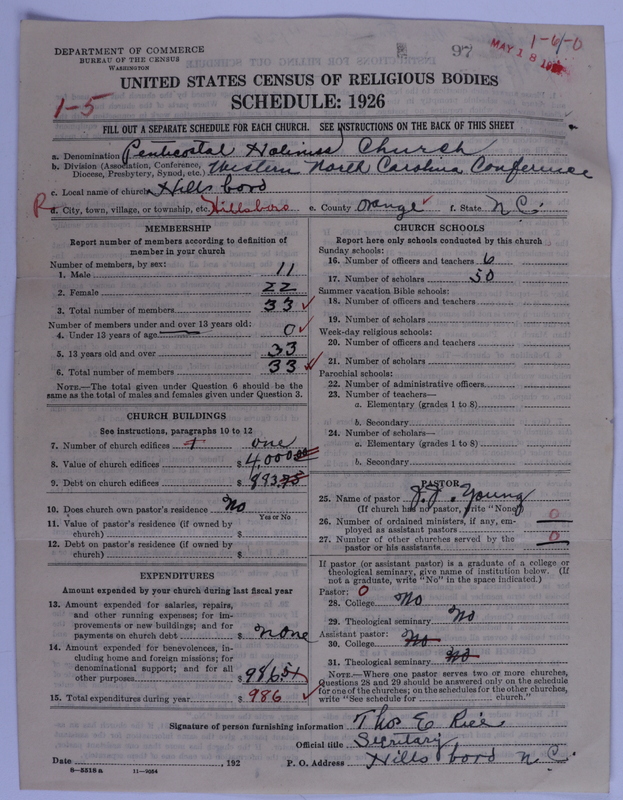 DEPARTMENT OF COMMERCE
BUREAU OF THE CENSUS
WASHINGTON
97
MAY 18
1-6-0
1-5
UNITED STATES CENSUS OF RELIGIOUS BODIES
SCHEDULE: 1926
FILL OUT A SEPARATE SCHEDULE FOR EACH CHURCH. SEE INSTRUCTIONS ON THE BACK OF THIS SHEET
a. Denomination Pentecostal Holiness Church
b. Division (Association, Conference, Diocese, Presbytery, Synod, etc.) Western North Carolina Conference
c. Local name of church Hillsboro
R d. City, town, village, or township, etc. Hillsboro e. County Orange ✓ f. State N C.
MEMBERSHIP
Report number of members according to definition of member in your church
Number of members, by sex:
1. Male 11
2. Female 22
3. Total number of members 33 ✓
Number of members under and over 13 years old:
4. Under 13 years of age 0 ✓
5. 13 years old and over 33
6. Total number of members 33 ✓
NOTE.—The total given under Question 6 should be the same as the total of males and females given under Question 3.
CHURCH BUILDINGS
See instructions, paragraphs 10 to 12
7. Number of church edifices 1 one
8. Value of church edifices $ 4,000.00
9. Debt on church edifices $ 893.75
10. Does church own pastor's residence No
Yes or No
11. Value of pastor's residence (if owned by church) $
12. Debt on pastor's residence (if owned by church) $
EXPENDITURES
Amount expended by your church during last fiscal year
13. Amount expended for salaries, repairs, and other running expenses; for improvements or new buildings; and for payments on church debt $ none
14. Amount expended for benevolences, including home and foreign missions; for denominational support; and for all other purposes $ 986.51
15. Total expenditures during year $ 986 ✓
CHURCH SCHOOLS
Report here only schools conducted by this church
Sunday schools:
16. Number of officers and teachers 6
17. Number of scholars 50
Summer vacation Bible schools:
18. Number of officers and teachers
19. Number of scholars
Week-day religious schools:
20. Number of officers and teachers
21. Number of scholars
Parochial schools:
22. Number of administrative officers
23. Number of teachers—
a. Elementary (grades 1 to 8)
b. Secondary
24. Number of scholars—
a. Elementary (grades 1 to 8)
b. Secondary
PASTOR
25. Name of pastor J. J. Young
(If church has no pastor, write "None")
26. Number of ordained ministers, if any, employed as assistant pastors 0
27. Number of other churches served by the pastor or his assistants 0
If pastor (or assistant pastor) is a graduate of a college or theological seminary, give name of institution below. (If not a graduate, write "No" in the space indicated.)
Pastor: 0
28. College No
29. Theological seminary No
Assistant pastor:
30. College No
31. Theological seminary No
NOTE.—Where one pastor serves two or more churches, Questions 28 and 29 should be answered only on the schedule for one of the churches; on the schedules for the other churches, write "See schedule for church."
Signature of person furnishing information Thos E Rice
Official title Secretary
Date , 192 P. O. Address Hillsboro N C.
8—5518 a 11—9054